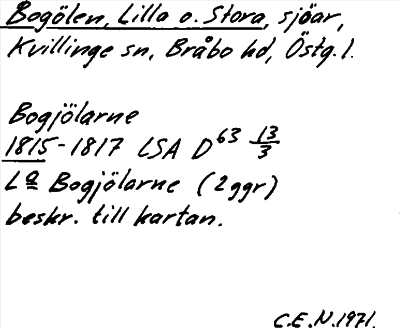 Bogölen, Lilla o. Stora, sjöar,
Kvillinge sn, Bråbo hd, Östg. l.
Bogjölarne
1815-1817 LSA D63 13/3
La Bogjölarne (2 ggr)
beskr. till kartan.
C.E.N. 1971.